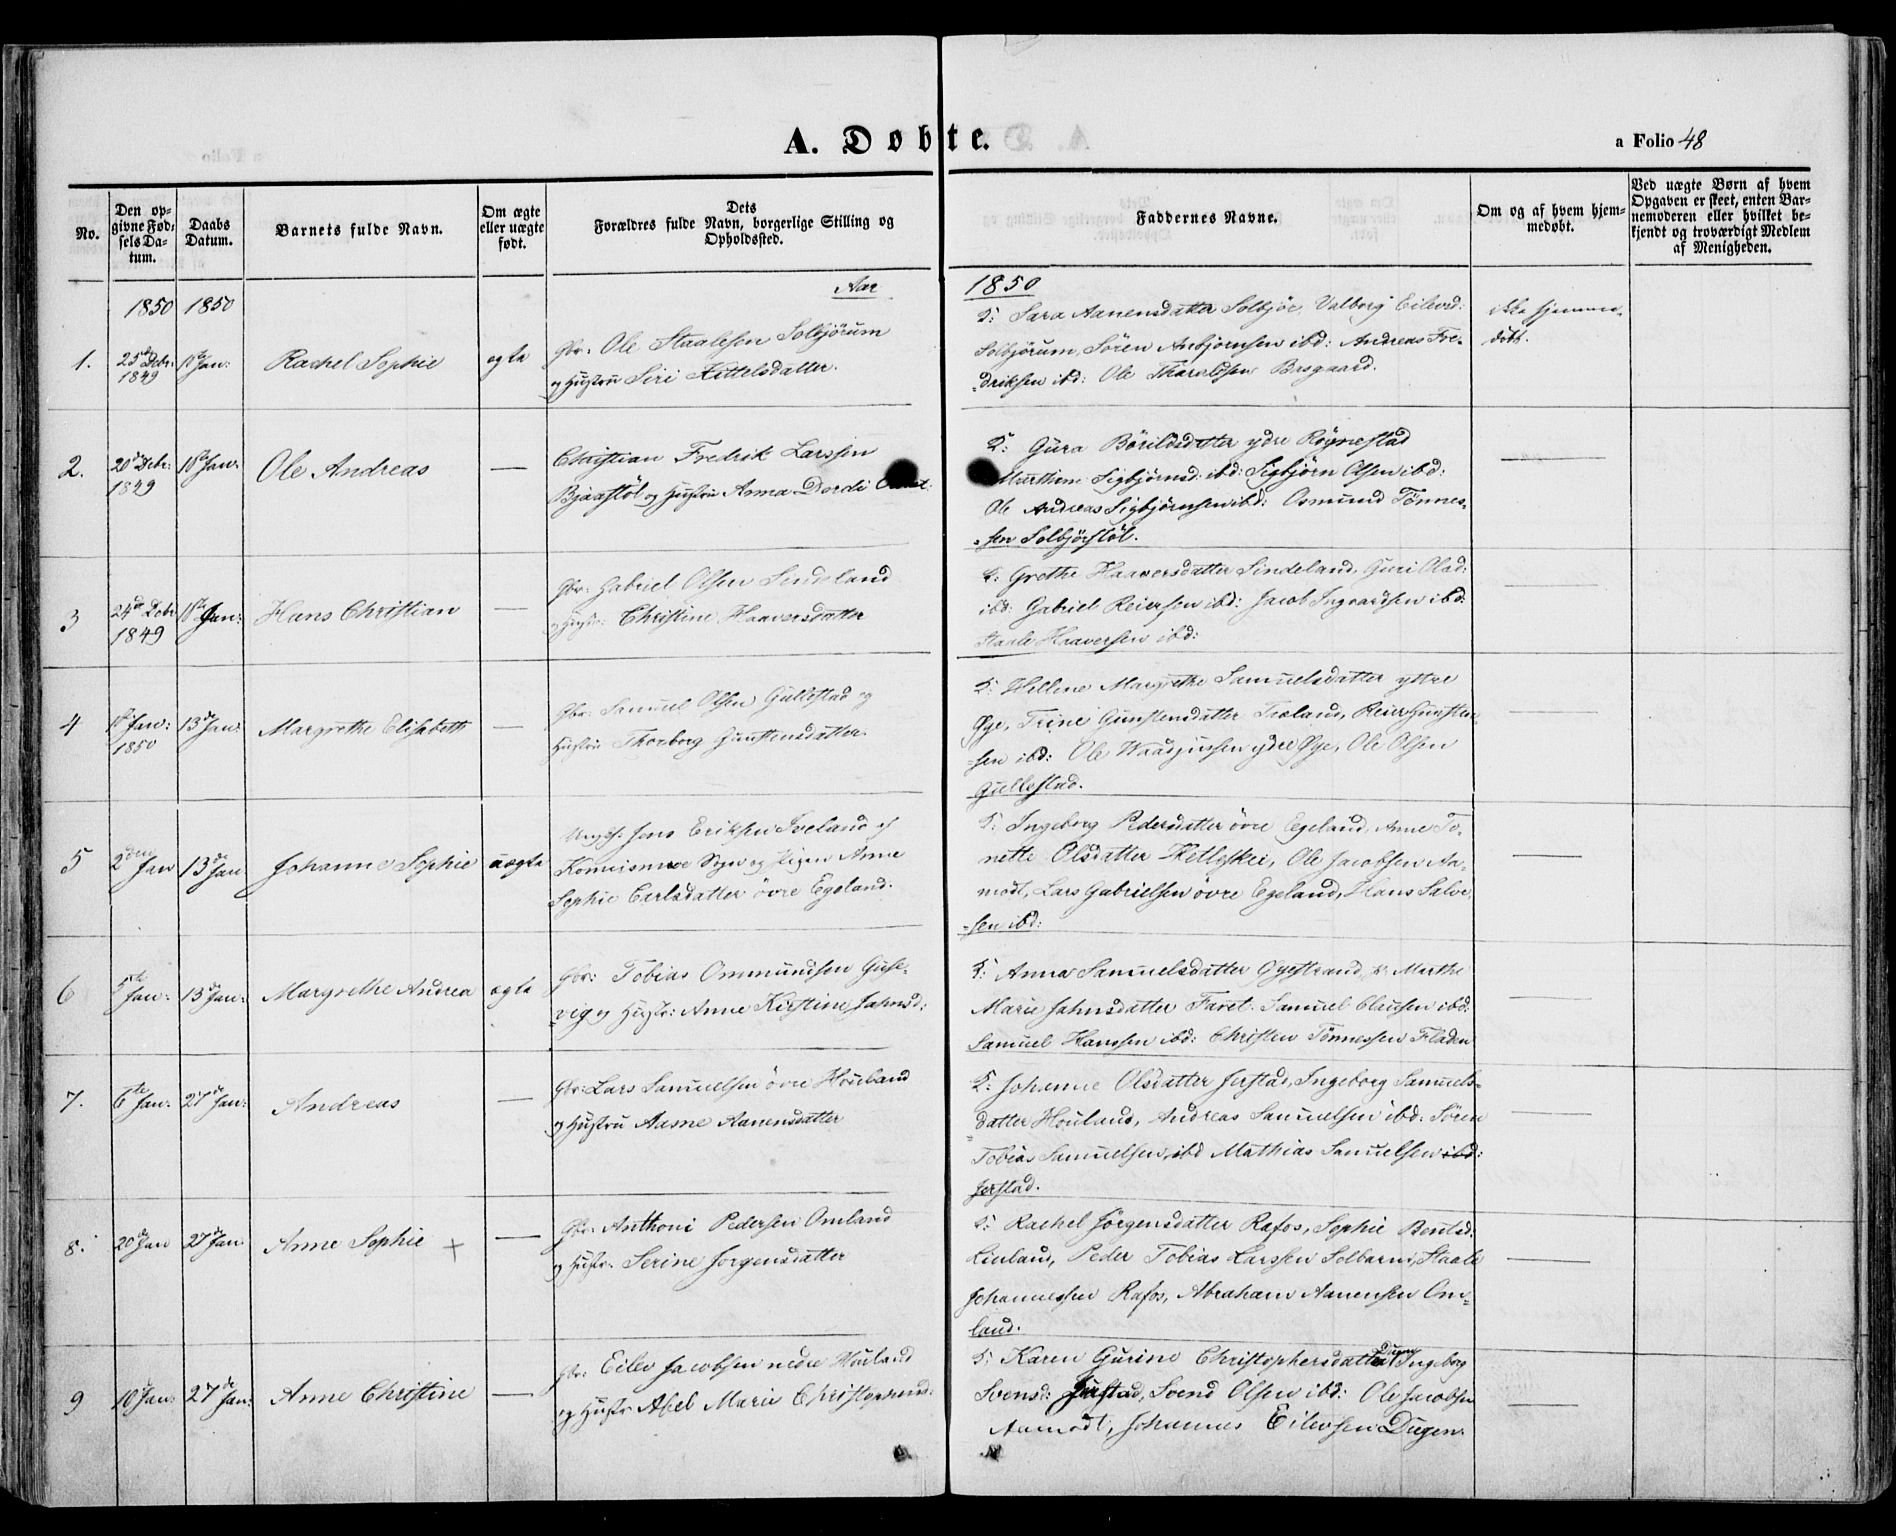 A. Døbte.
a Folio 48
No.
Den op-
givne Fød-
sels Da-
tum.
Daabs
Datum.
Barnets fulde Navn.
Om ægte
eller uægte
født.
Dets
Forældres fulde Navn, borgerlige Stilling og
Opholdssted.
Faddernes Navne.
Om og af hvem hjem-
medøbt.
Ved uægte Børn af hvem
Opgaven er skeet, enten Bar-
nemoderen eller hvilket be-
kjendt og troværdigt Medlem
af Menigheden.
Aar 1850
1850 1850
1.
25de Debr:
1849
Jan:
Rachel Sophie
ægte
Gbr: Ole Staalesen Solbjørum
og Hustru Siri Kittelsdatter.
F: Sara Aanensdatter Solbjør, Valborg Eilevsd:
Solbjørum, Sören Anbjørnsen ibd: Andreas Fre-
driksen ibd: Ole Tharaldsen Basgaard.
ikke hjemme-
døbt.
2.
20de Debr:
1849
Jan:
Ole Andreas
—
Christian Fredrik Larssen
Bjaastøl og Hustru Anna Dordi
F: Gura Börildsdatter ydre Røgnestad
Marthine Sigbjørnsd: ibd: Sigbjørn Olsen ibd:
Ole Andreas Sigbjörnsen ibd: Osmund Tønnes-
sen Solbjørstøl.
—
3
24de Debr
1849
Jan:
Hans Christian
—
Gbr: Gabriel Olsen Sindeland
og Hustr: Christine Haaversdatter
F: Grethe Haaversdatter Sindeland, Guri Olsd:
ibd: Gabriel Reiersen ibd: Jacob Ingvardsen ibd:
Staale Haaversen ibd:
—
4
1ste Jan:
1850
13de Jan:
Margrethe Elisabeth
—
Gbr: Samuel Olsen Gullestad og
Hustru Thorborg Gunstensdatter.
F: Hellene Margrethe Samuelsdatter yttre
Øye, Trine Gunstensdatter Troland, Reier Gunsten-
sen ibd: Ole ydre Øye, Ole Olsen
Gullestad.
—
5
2den
Jan
13de Jan
Johanne Sophie
uægte
Ungk: Jens Eriksen Iveland af
Sogn og Pigen Anne
Sophie Carlsdatter övre Egeland.
F: Ingeborg Pedersdatter övre Egeland, Anne To-
nette Olsdatter Ketleskei, Ole Jacobsen Aa-
modt, Lars Gabrielsen övre Egeland, Hans Salve-
sen ibd:
—
6
5te
Jan:
13de Jan:
Margrethe Andrea
ægte
Gbr: Tobias Ommundsen Guse-
vig og Hustr: Anne Kirstine Jahnsd:
F: Anna Samuelsdatter Øyestrand, Marthe
Marie Jahnsdatter Faret. Samuel Clausen ibd:
Samuel Hanssen ibd: Christen Tønnessen Fladen
—
7.
6te Jan:
27de Jan:
Andreas
—
Gbr: Lars Samuelsen övre Houland
og Hustru Aasne Aanensdatter
F: Johanne Olsdatter Jerstad, Ingeborg Samuels-
datter Houland, Andreas Samuelsen ibd: Sören
Tobias Samuelsen ibd Mathias Samuelsen ibd:
Jerstad.
—
8.
20de Jan
27de Jan
Anne Sophie +
—
Gbr: Anthoni Pedersen Omland
og Hustr: Serine Jorgensdatter
F: Rachel Jörgensdatter Rafos, Sophie Bentsd:
Linland, Peder Tobias Larssen Solbarni, Staale
Johannessen Rafos, Abraham Aanensen Om-
land.
—
9
10de Jan:
27de Jan:
Anne Christine
—
Gbr: Eilev Jacobsen nedre Houland
og Hustr Abel Marie
F: Karen Gurine Christophersdatter Dugen Ingeborg
Svensd: Jerstad, Svend Olsen ibd: Ole Jacobsen
Aamodt, Johannes Eilevsen Dugen.
—